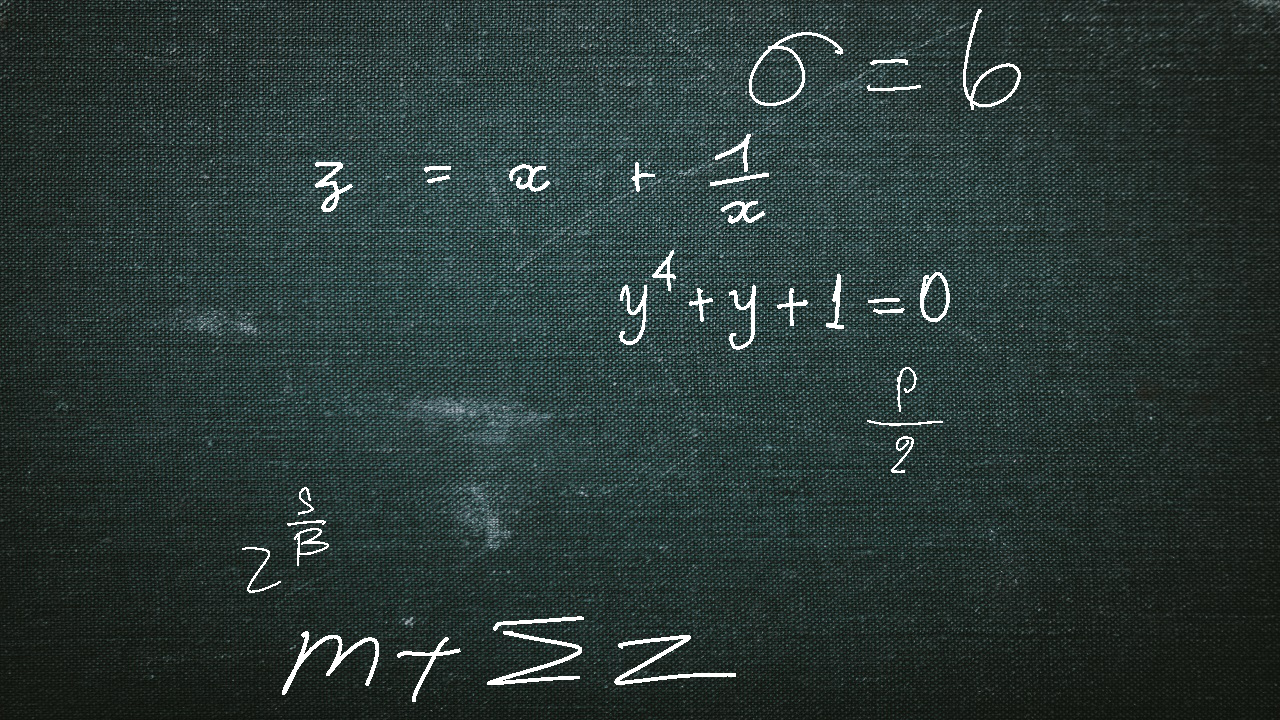 σ = 6
z = x + \frac{1}{x}
y^4 + y + 1 = 0
\frac{p}{2}
z^{\frac{s}{β}}
m + Σ z